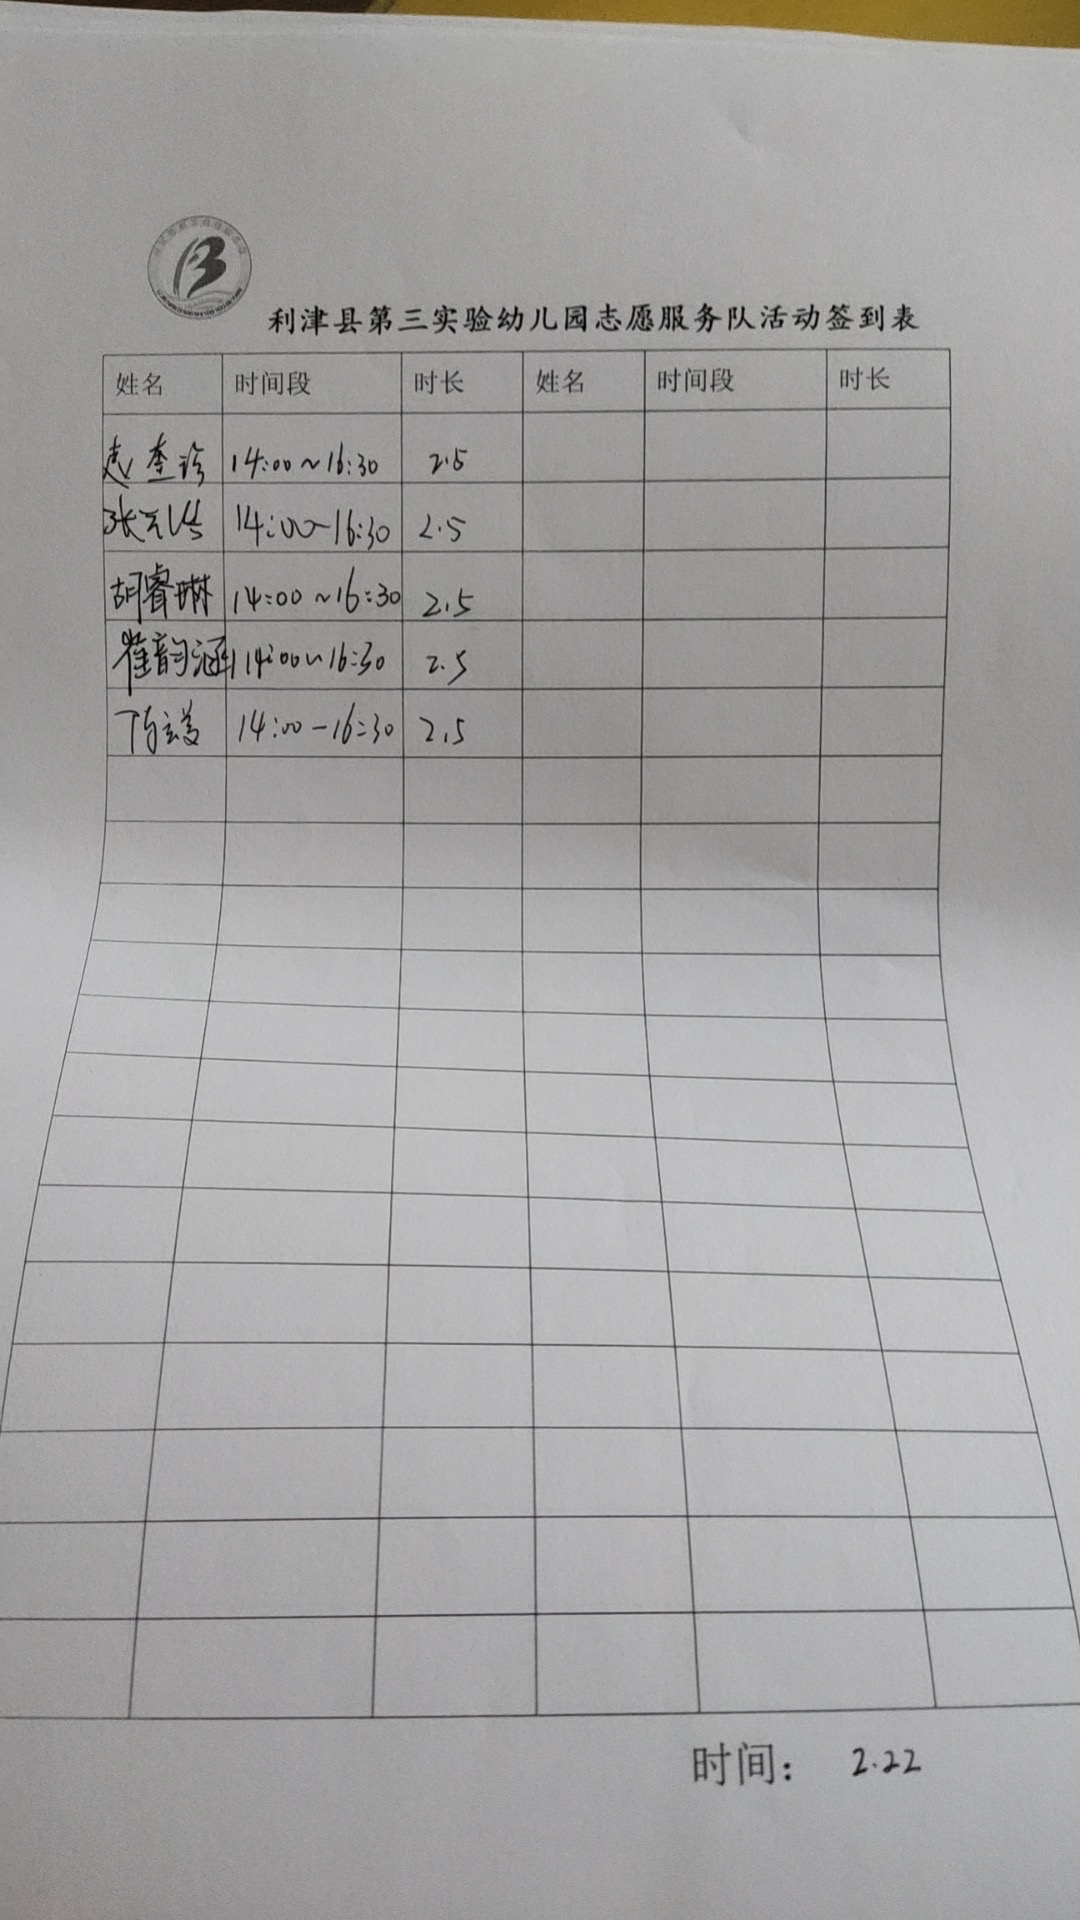 利津县第三实验幼儿园志愿服务队活动签到表
姓名 时间段 时长 姓名 时间段 时长
14:00~16:30 2.5
14:00-16:30 2.5
胡睿琳 14:00~16:30 2.5
崔韵涵 14:00~16:30 2.5
14:00-16:30 2.5
时间: 2.22